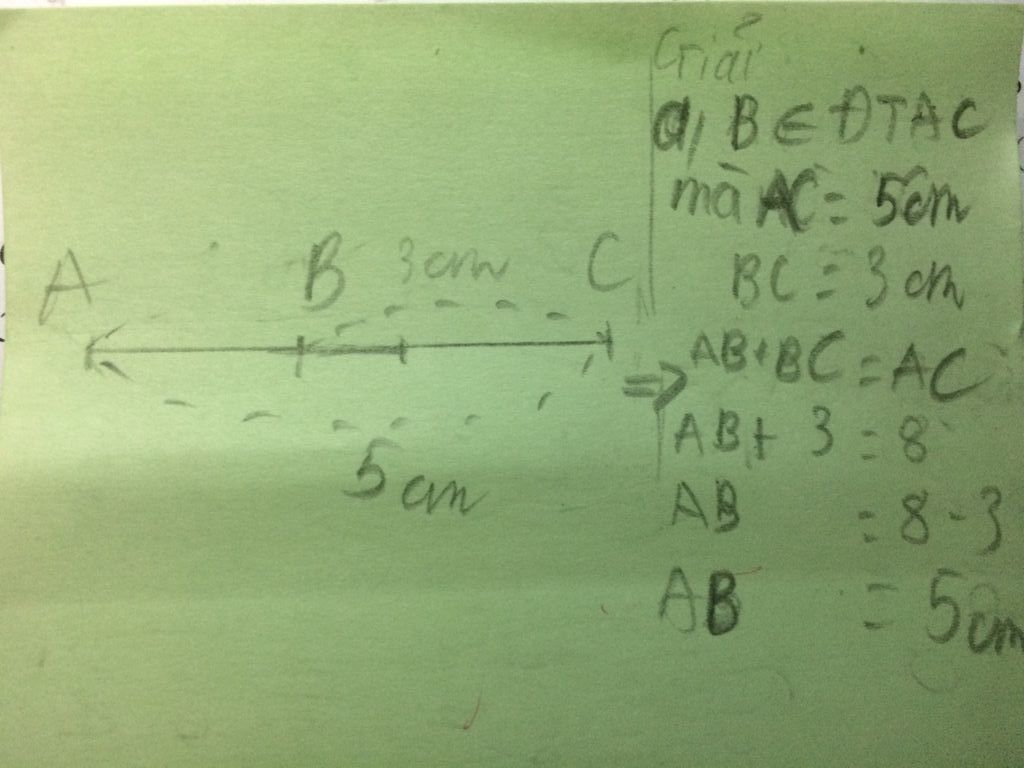 A B 3cm C
5cm
Giải
a, B ∈ ĐTAC
mà AC = 5cm
BC = 3cm
=> AB+BC = AC
AB+ 3 = 8
AB = 8-3
AB = 5cm